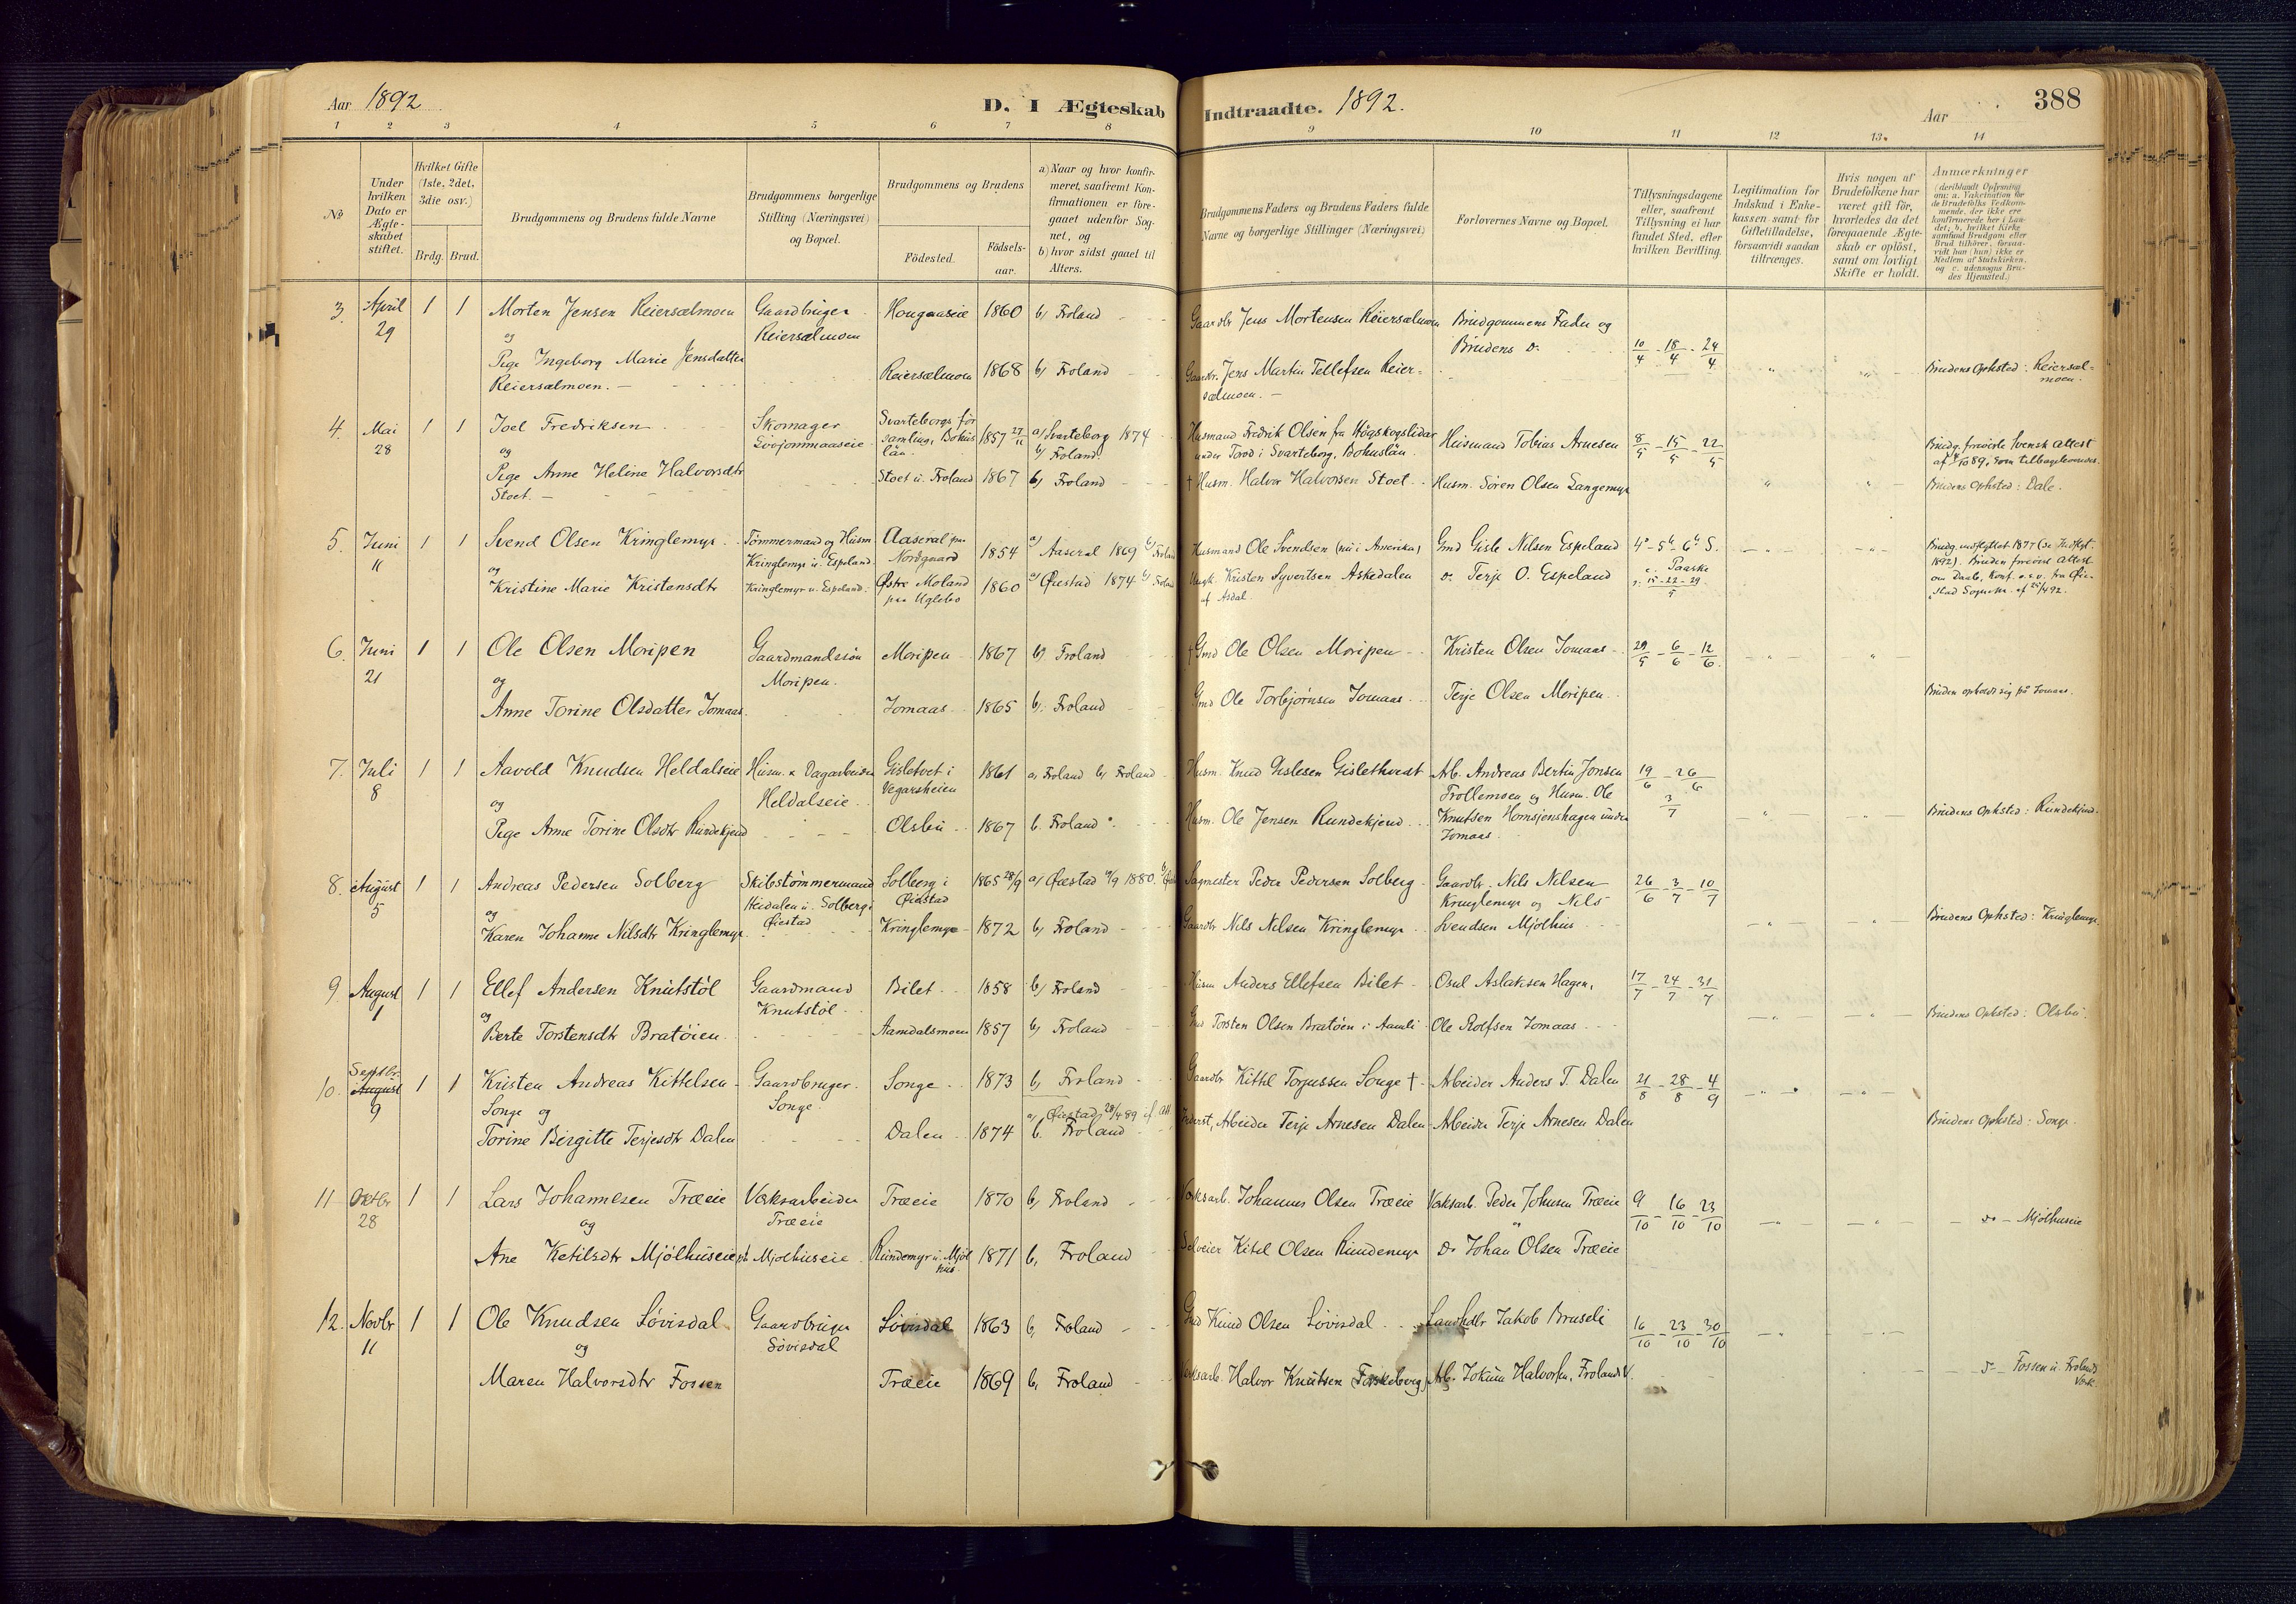 Aar 1892
D. I Ægteskab
Indtraadte. 1892.
Aar
388
1 2 3 4 5 6 7 8 9 10 11 12 13. 14
No
Under hvilken Dato er Ægteskabet stiftet.
Hvilket Gifte (1ste, 2det, 3die osv.)
Brdg. Brud.
Brudgommens og Brudens fulde Navne
Brudgommens borgerlige Stilling (Næringsvei) og Bopæl.
Brudgommens og Brudens
Födested.
Födselsaar.
a) Naar og hvor konfirmeret, saafremt Konfirmationen er foregaaet udenfor Sognet, og
b) hvor sidst gaaet til Alters.
Brudgommens Faders og Brudens Faders fulde Navne og borgerlige Stillinger (Næringsvei)
Forlovernes Navne og Bopæl.
Tillysningsdagene eller, saafremt Tillysning ei har fundet Sted, efter hvilken Bevilling.
Legitimation for Indskud i Enkekassen samt for Giftetilladelse, forsaavidt saadan tiltrænges.
Hvis nogen af Brudefolkene har været gift för, hvorledes da det foregaaende Ægteskab er oplöst, samt om lovligt Skifte er holdt.
Anmærkninger
3. April 29 1 1 Morten Jensen Reiersælmoen Gaardbruger Reiersælmoen Hougaaseie 1860 b, Froland Gaardbr Jens Mortensen Reiersælmoen Brudgommens Fader og
og
Pige Ingeborg Marie Jensdatter Reiersælmoen. Reiersælmoen 1868 b, Froland Gaardbr. Jens Martin Tellefsen Reiersælmoen. Brudens do 10/4 - 18/4 - 24/4 Brudens Ophsted: Reiersælmoen.
4. Mai 28 1 1 Joel Fredriksen Skomager Svarteborgs församling, Bohuslän 1857 27/11 a, Svarteborg 1874 b, Froland. Husmand Fredrik Olsen fra Högskogslidar under Torod i Svarteborg, Bohuslän Husmand Tobias Arnesen 8/5 - 15/5 - 22/5
og
Pige Anne Heline Halvorsdtr Stoet. Stoet u. Froland 1867 b, Froland † Husm. Halvor Halvorsen Stoet Husm. Sören Olsen Langemyr Brudens Ophsted: Dale.
5. Juni 11 1 1 Svend Olsen Kringlemyr Tömmermand og Husm Kringlemyr u. Espeland Aaseral paa Nordgaard 1854 a, Aaseral 1869 b, Froland Husmand Ole Svendsen (nu i Amerika) Gmd Gisle Nilsen Espeland
og
Kristine Marie Kristensdtr Kringlemyr u. Espeland. Østre Moland paa Uglebo 1860 a, Øiestad 1874 b, Froland Ungk. Kristen Syvertsen Askedalen af Asdal do Terje O. Espeland 15 - 22 - 29/5
6. Juni 21 1 1 Ole Olsen Moripen Gaardmandssön Moripen. Moripen 1867 b, Froland † Gmd Ole Olsen Moripen Kristen Olsen Jomaas 29/5 - 6/6 - 12/6
og
Anne Torine Olsdatter Jomaas. Jomaas 1865 b, Froland Gmd Ole Torbjørnsen Jomaas Terje Olsen Moripen Bruden opholdt sig på Jomaas.
7. Juli 8 1 1 Aavold Knudsen Heldalseie Husm. & Dagarbeider Heldalseie Gisletvet i Vegarsheien 1861 a, Froland b, Froland Husm. Knud Gislesen Gislethvedt Arb. Andreas Bertin Jonsen 19/6 - 26/6 3/7
og
Pige Anne Torine Olsdtr Rundekjend Olsbu 1867 b. Froland Husm. Ole Jensen Rundekjend Trollemoen og Husm. Ole Knutsen Homsjenshagen under Jomaas Brudens Ophsted: Rundekjend.
8. August 5 1 1 Andreas Pedersen Solberg Skibstömmermand Heidalen u. Solberg i Øiestad Solberg i Øiestad 1865 28/9 a, Øiestad 1880. Sagmester Peder Pedersen Solberg Gaardbr. Nils Nilsen 26/6 - 3/7 - 10/7
og
Karen Johanne Nilsdtr Kringlemyr. Kringlemyr 1872 b, Froland Gaardbr Nils Nilsen Kringlemyr Kringlemyr og Nils Svendsen Mjölhus Brudens Ophsted: Kringlemyr.
9. August 1 1 1 Ellef Andersen Knutstöl Gaardmand Knutstöl Bilet 1858 b, Froland Husm Anders Ellefsen Bilet Osul Aslaksen Hagen, 17/7 - 24/7 - 31/7
og
Berte Torstensdtr Bratöien Aamdalsmoen 1857 b, Froland Gmd Torsten Olsen Bratöen i Aamli Ole Rolfsen Jomaas Brudens Ophsted: Olsbu.
10. Septbr. August 9 1 1 Kristen Andreas Kittelsen Songe Gaardbruger Songe Songe 1873 b, Froland Gaardbr Kittel Torjussen Songe † Arbeider Anders T. Dalen 21/8 - 28/8 - 4/9
og
Torine Birgitte Terjesdtr Dalen Dalen 1874 a, Øiestad 28/4 89 if. Att. b. Froland Inderst, Arbeider Terje Arnesen Dalen Arbeider Terje Arnesen Dalen Brudens Ophsted: Songe.
11 Oktbr 28 1 1 Lars Johannesen Træeie Værksarbeider Træeie Træeie 1870 b, Froland Værksarb. Johannes Olsen Træeie Værksarb. Peder Johnsen Træeie 9/10 - 16/10 - 23/10 do - Mjölhuseie
og
Ane Ketilsdtr Mjölhuseie Mjolhuseie Rundemyr u. Mjölhus. 1871 b, Froland Selveier Kitel Olsen Rundemyr do Johan Olsen Træeie
12. Novbr 11 1 1 Ole Knudsen Lövisdal Gaardbruger Lövisdal Lövisdal 1863 b, Froland Gmd Knud Olsen Lövisdal Landhdlr Jakob Bruseli 16/10 - 23/10 - 30/10
og
Maren Halvorsdtr Fossen Træeie 1869 b, Froland Værksarb. Halvor Knutsen Arb. Jokum Halvorsen, Frolands V. do Fossen u. Frolands Værk.